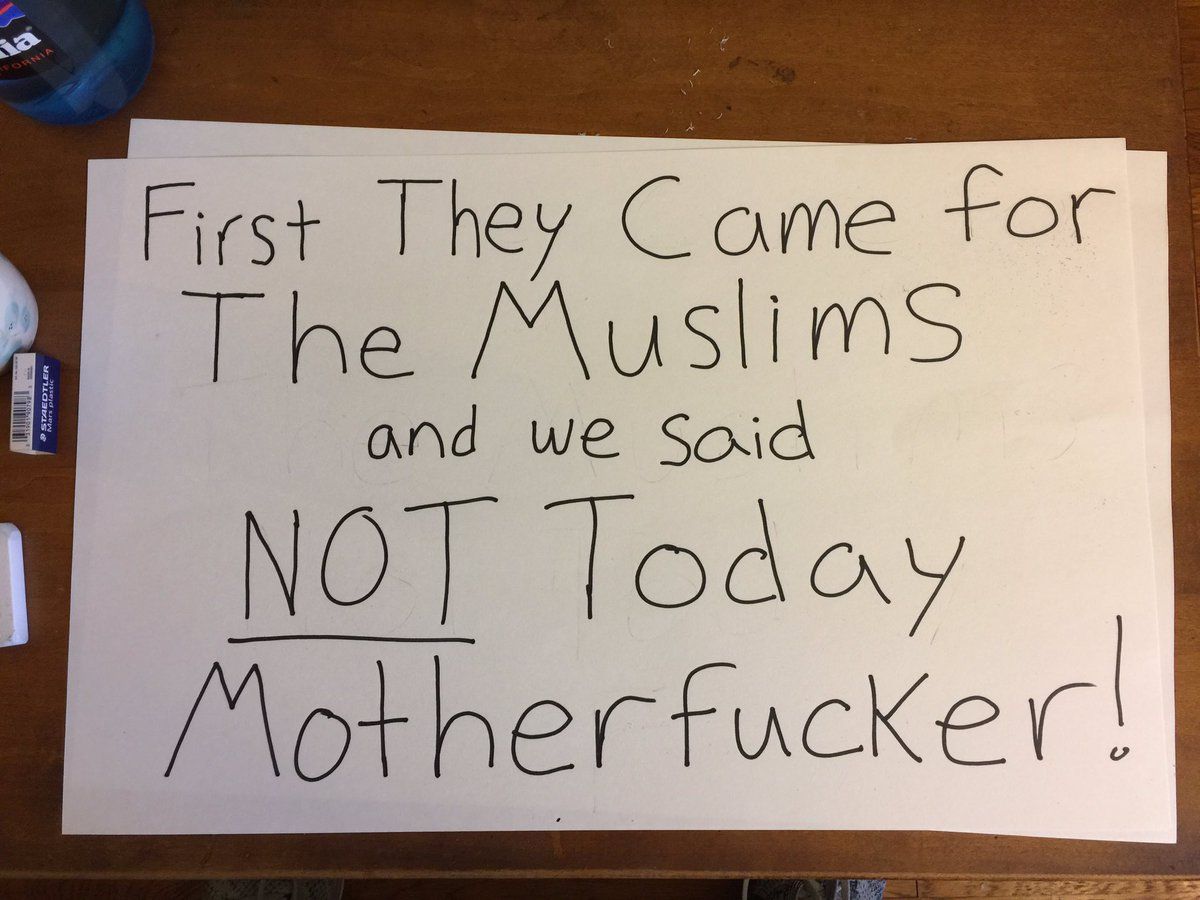 First They Came for
The Muslims
and we said
NOT Today
Motherfucker!
ia
IFORNIA
STAEDTLER
Mars plastic